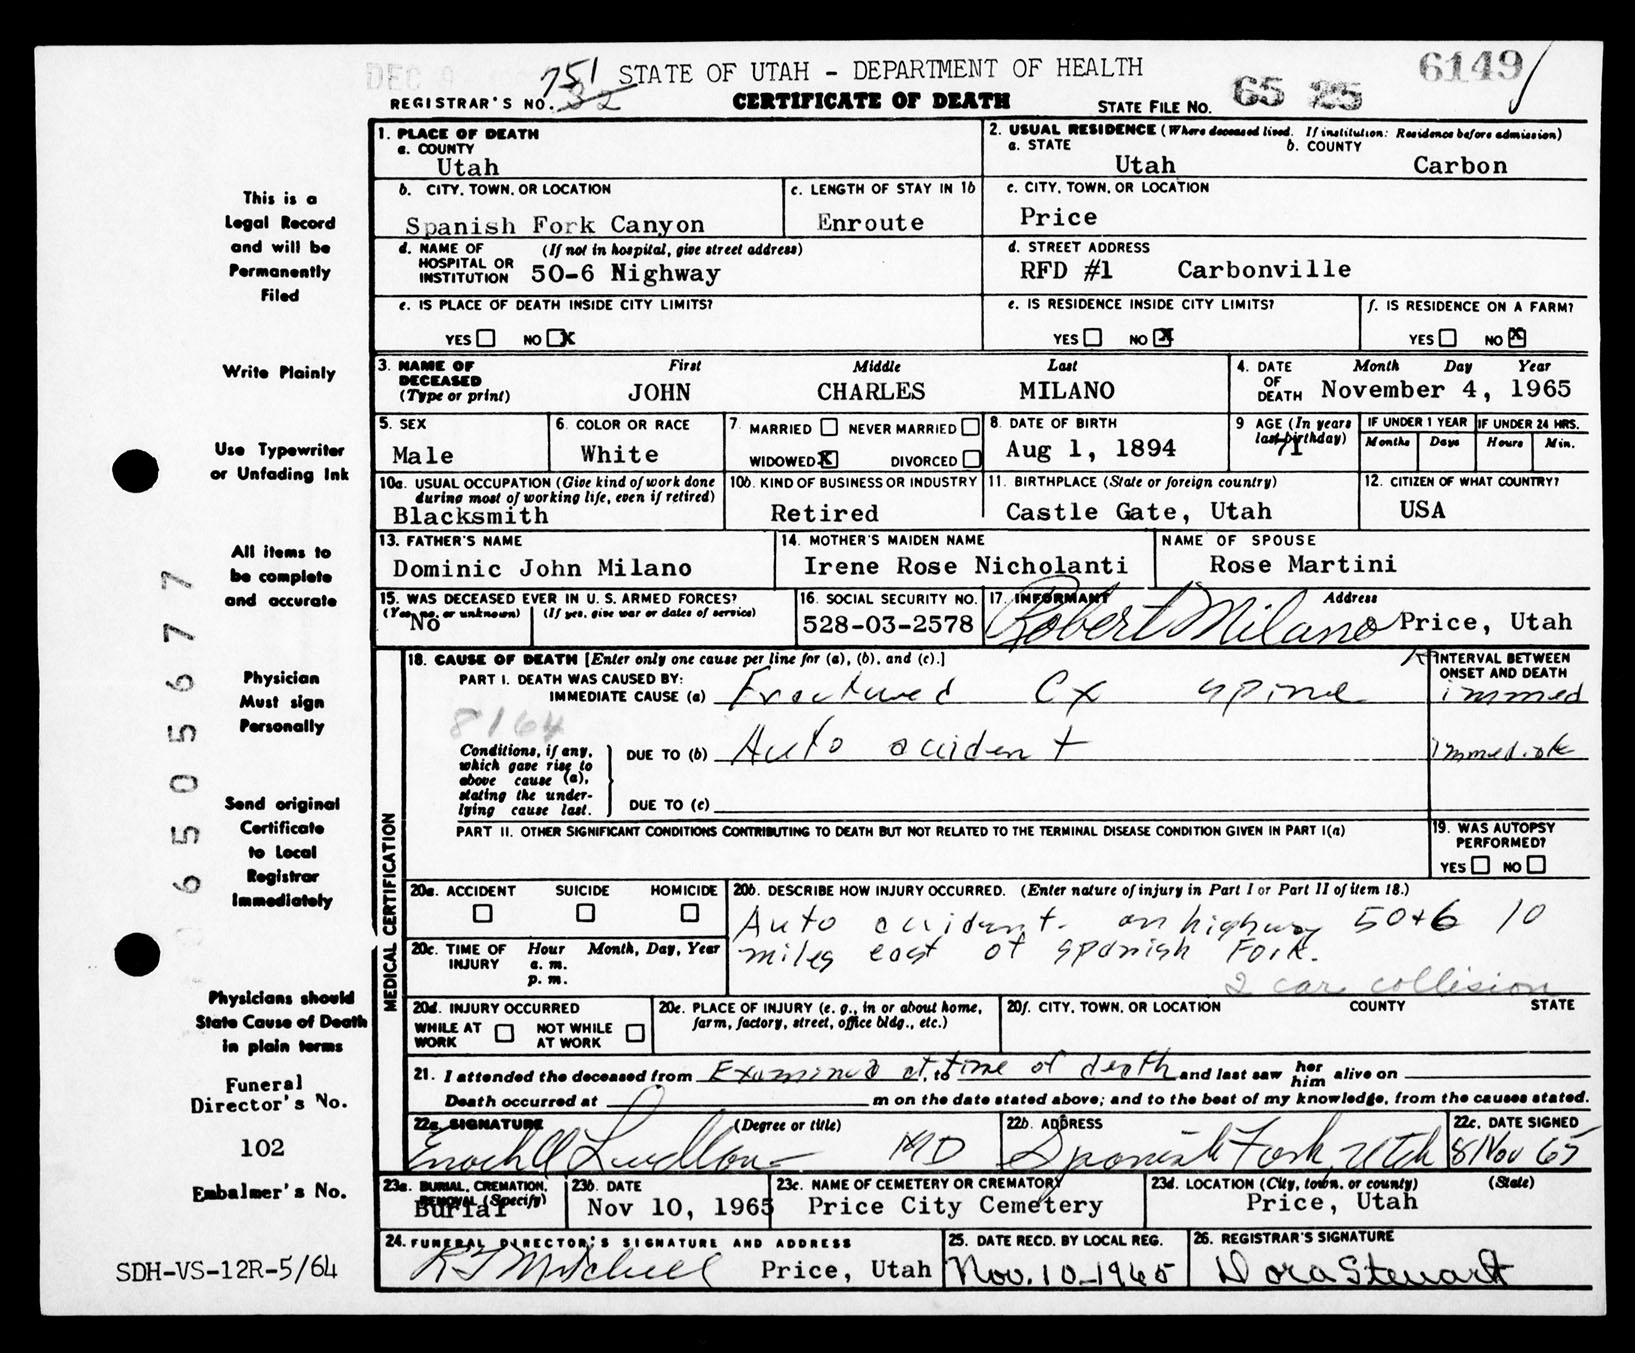 DEC 9
STATE OF UTAH - DEPARTMENT OF HEALTH
6149
REGISTRAR'S NO. 751 32
CERTIFICATE OF DEATH
STATE FILE NO. 65 25
This is a
Legal Record
and will be
Permanently
Filed
Write Plainly
Use Typewriter
or Unfading Ink
All items to
be complete
and accurate
Physician
Must sign
Personally
Send original
Certificate
to Local
Registrar
Immediately
Physicians should
State Cause of Death
in plain terms
Funeral
Director's No.
102
Embalmer's No.
SDH-VS-12R-5/64
0 6 5 0 5 6 7 7
1. PLACE OF DEATH
a. COUNTY
Utah
2. USUAL RESIDENCE (Where deceased lived. If institution: Residence before admission)
a. STATE b. COUNTY
Utah Carbon
b. CITY, TOWN, OR LOCATION
Spanish Fork Canyon
c. LENGTH OF STAY IN 1b
Enroute
c. CITY, TOWN, OR LOCATION
Price
d. NAME OF HOSPITAL OR INSTITUTION (If not in hospital, give street address)
50-6 Nighway
d. STREET ADDRESS
RFD #1 Carbonville
e. IS PLACE OF DEATH INSIDE CITY LIMITS?
YES NO X
e. IS RESIDENCE INSIDE CITY LIMITS?
YES NO X
f. IS RESIDENCE ON A FARM?
YES NO X
3. NAME OF DECEASED (Type or print)
First Middle Last
JOHN CHARLES MILANO
4. DATE OF DEATH Month Day Year
November 4, 1965
5. SEX
Male
6. COLOR OR RACE
White
7. MARRIED NEVER MARRIED
WIDOWED X DIVORCED
8. DATE OF BIRTH
Aug 1, 1894
9 AGE (In years last birthday)
71
IF UNDER 1 YEAR IF UNDER 24 HRS.
Months Days Hours Min.
10a. USUAL OCCUPATION (Give kind of work done during most of working life, even if retired)
Blacksmith
10b. KIND OF BUSINESS OR INDUSTRY
Retired
11. BIRTHPLACE (State or foreign country)
Castle Gate, Utah
12. CITIZEN OF WHAT COUNTRY?
USA
13. FATHER'S NAME
Dominic John Milano
14. MOTHER'S MAIDEN NAME
Irene Rose Nicholanti
NAME OF SPOUSE
Rose Martini
15. WAS DECEASED EVER IN U. S. ARMED FORCES?
(Yes, no, or unknown) (If yes, give war or dates of service)
No
16. SOCIAL SECURITY NO.
528-03-2578
17. INFORMANT Address
Robert Milano Price, Utah
MEDICAL CERTIFICATION
18. CAUSE OF DEATH [Enter only one cause per line for (a), (b), and (c).]
INTERVAL BETWEEN ONSET AND DEATH
PART I. DEATH WAS CAUSED BY:
IMMEDIATE CAUSE (a) Fractured Cx spine immed
8164
Conditions, if any, which gave rise to above cause (a), stating the underlying cause last.
DUE TO (b) Auto accident immediate
DUE TO (c)
PART II. OTHER SIGNIFICANT CONDITIONS CONTRIBUTING TO DEATH BUT NOT RELATED TO THE TERMINAL DISEASE CONDITION GIVEN IN PART I(a)
19. WAS AUTOPSY PERFORMED?
YES NO
20a. ACCIDENT SUICIDE HOMICIDE
20b. DESCRIBE HOW INJURY OCCURRED. (Enter nature of injury in Part I or Part II of item 18.)
Auto accident. on highway 50+6 10
miles east of Spanish Fork.
2 car collision
20c. TIME OF INJURY Hour Month, Day, Year
a. m.
p. m.
20d. INJURY OCCURRED
WHILE AT WORK NOT WHILE AT WORK
20e. PLACE OF INJURY (e. g., in or about home, farm, factory, street, office bldg., etc.)
20f. CITY, TOWN, OR LOCATION COUNTY STATE
21. I attended the deceased from Examined at, to time of death and last saw her him alive on
Death occurred at m on the date stated above; and to the best of my knowledge, from the causes stated.
22a. SIGNATURE (Degree or title)
Enoch Ludlow MD
22b. ADDRESS
Spanish Fork, Utah
22c. DATE SIGNED
8 Nov 65
23a. BURIAL, CREMATION, REMOVAL (Specify)
Burial
23b. DATE
Nov 10, 1965
23c. NAME OF CEMETERY OR CREMATORY
Price City Cemetery
23d. LOCATION (City, town, or county) (State)
Price, Utah
24. FUNERAL DIRECTOR'S SIGNATURE AND ADDRESS
Mitchell Price, Utah
25. DATE RECD. BY LOCAL REG.
Nov. 10-1965
26. REGISTRAR'S SIGNATURE
Dora Stewart